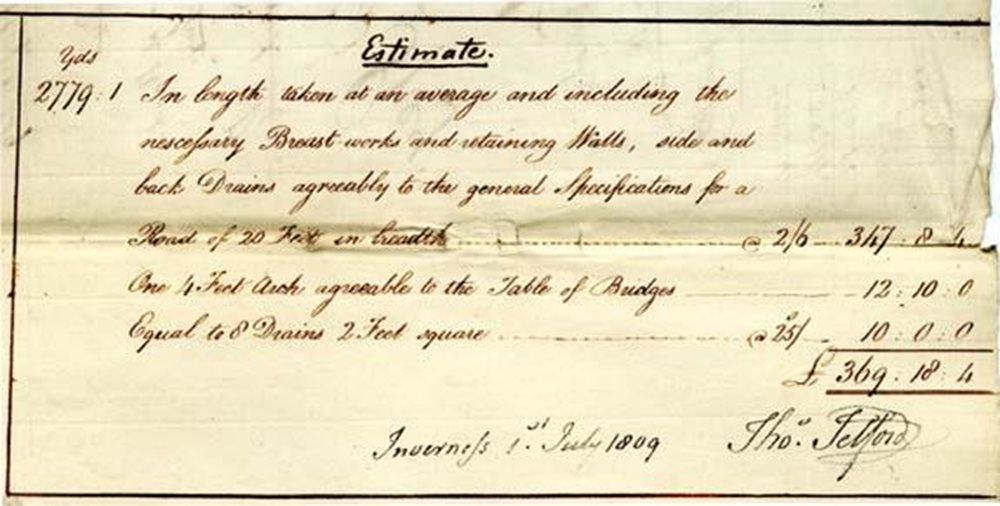 Estimate.
Yds
2779:1 In length taken at an average and including the
nesceſsary Breast-works and retaining Walls, side and
back Drains agreeably to the general Specifications for a
Road of 20 Feet in breadth @ 2/6 347:8:4
One 4 Feet Arch agreeable to the Table of Bridges 12:10:0
Equal to 8 Drains 2 Feet square @ 25/ 10:0:0
£ 369:18:4
Inverneſs 1st July 1809 Thos. Telford